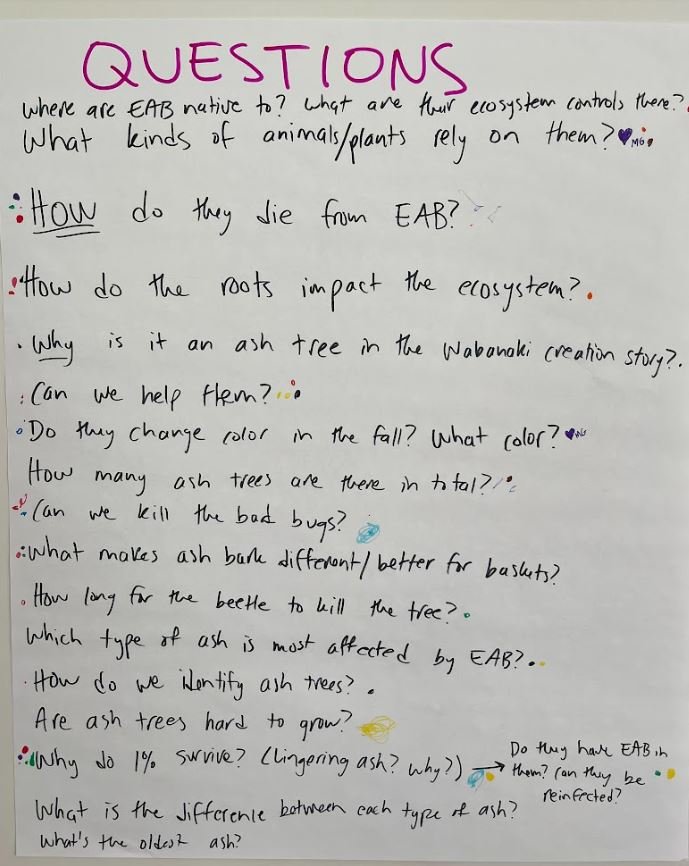 QUESTIONS
Where are EAB native to? What are their ecosystem controls there?
What kinds of animals/plants rely on them?
HOW do they die from EAB?
How do the roots impact the ecosystem?
Why is it an ash tree in the Wabanaki creation story?
Can we help them?
Do they change color in the fall? What color?
How many ash trees are there in total?
Can we kill the bad bugs?
What makes ash bark different/better for baskets?
How long for the beetle to kill the tree?
Which type of ash is most affected by EAB?
How do we identify ash trees?
Are ash trees hard to grow?
Why do 1% survive? (lingering ash? why?) →
Do they have EAB in
them? Can they be
reinfected?
What is the difference between each type of ash?
What's the oldest ash?